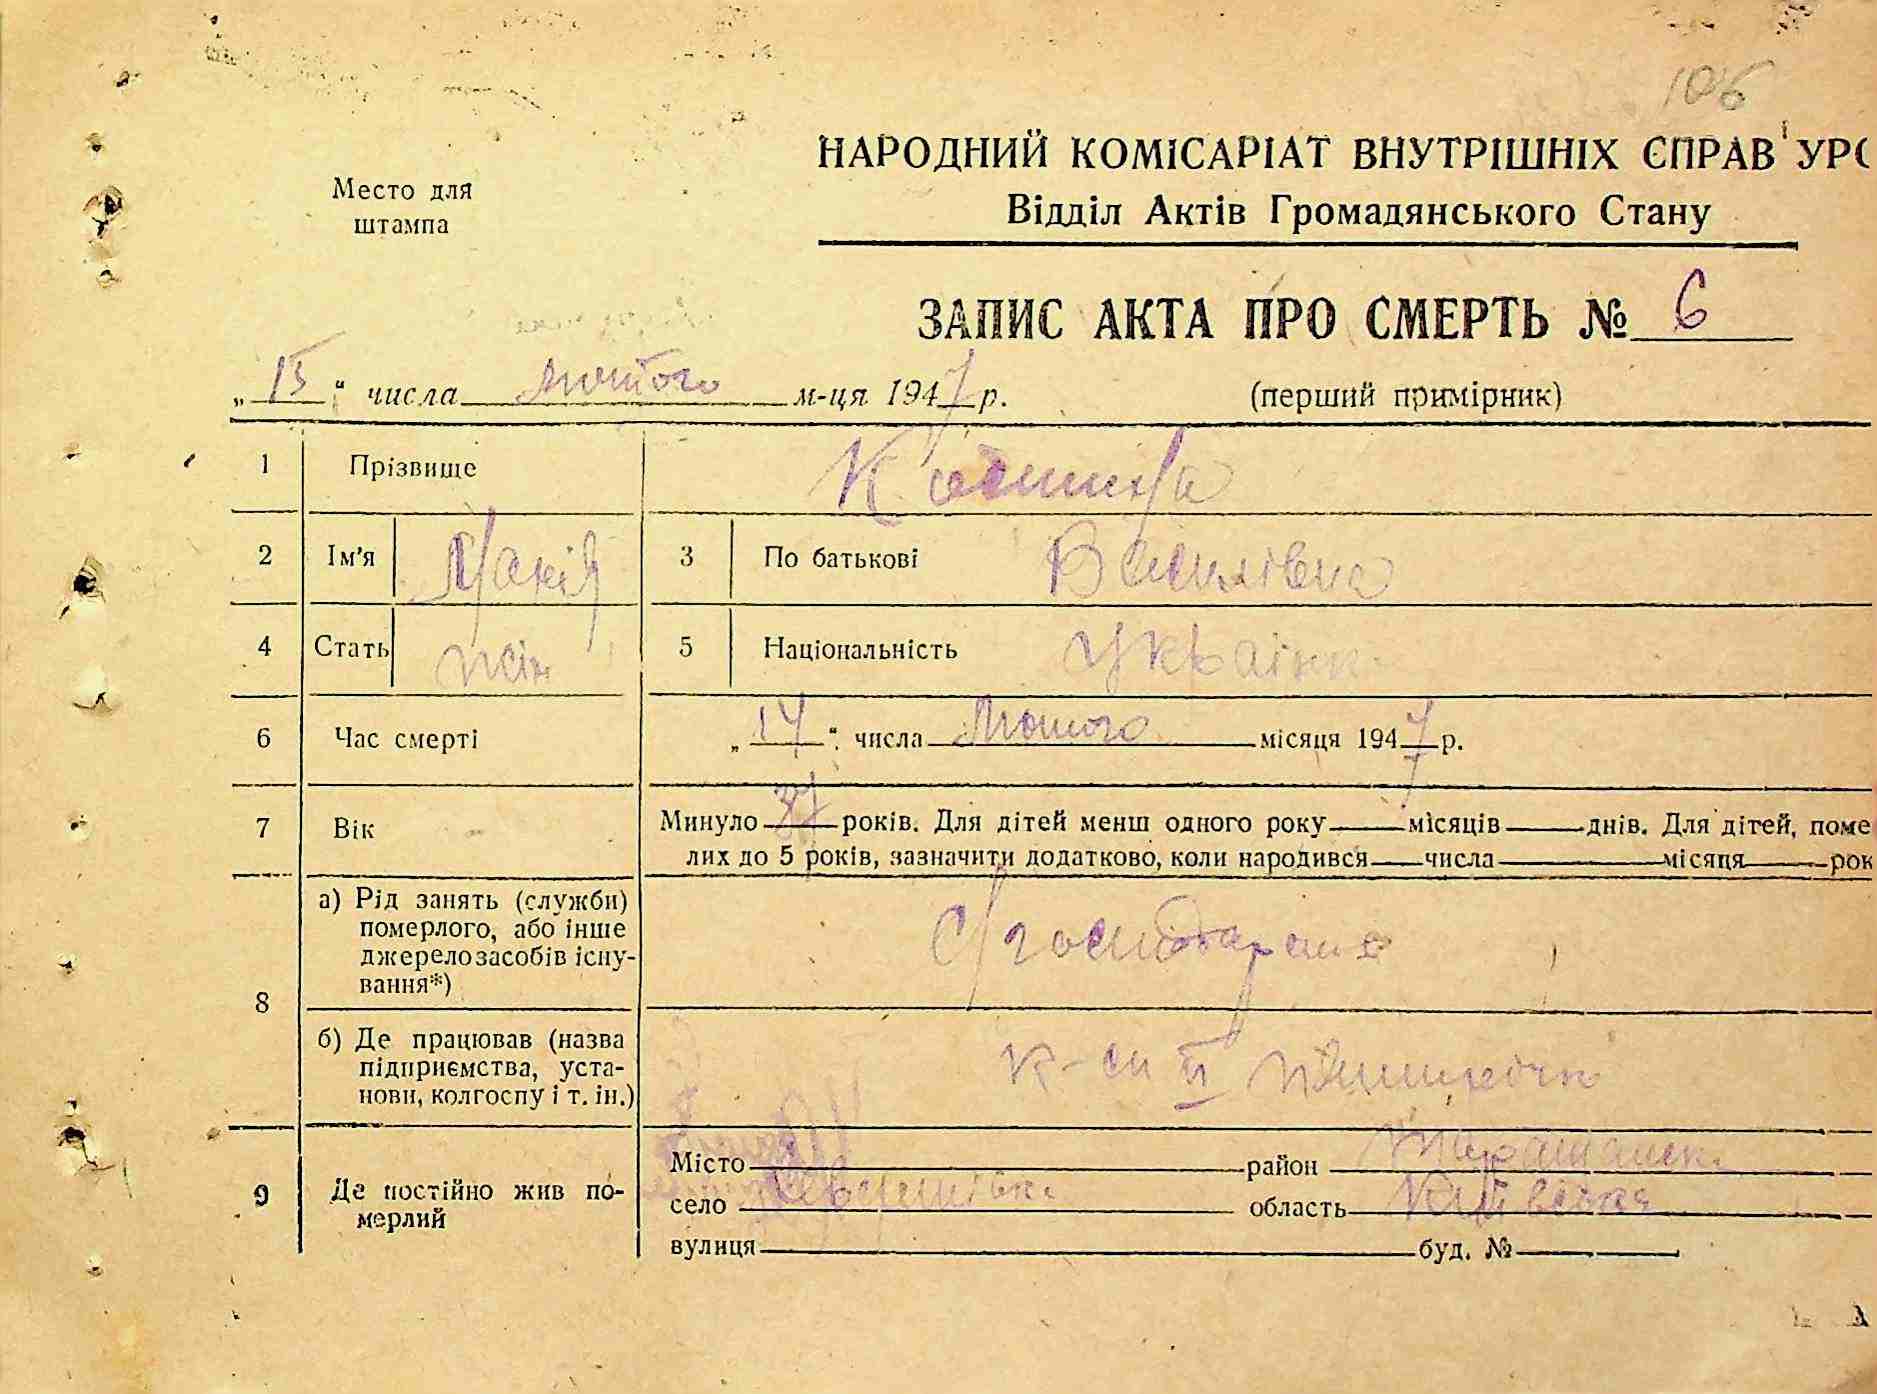 106
НАРОДНИЙ КОМІСАРІАТ ВНУТРІШНІХ СПРАВ УРС
Место для
штампа
Відділ Актів Громадянського Стану
ЗАПИС АКТА ПРО СМЕРТЬ № 6
„15“ числа лютого м-ця 1947 р. (перший примірник)
1 Прізвище
2 Ім'я Марія 3 По батькові Василівна
4 Стать жін 5 Національність українк
6 Час смерті „14“ числа Лютого місяця 1947 р.
7 Вік Минуло 37 років. Для дітей менш одного року місяців днів. Для дітей, поме
лих до 5 років, зазначити додатково, коли народився числа місяця рок
8 а) Рід занять (служби)
померлого, або інше
джерело засобів існу-
вання*)
С/господарство
б) Де працював (назва
підприємства, уста-
нови, колгоспу і т. ін.)
к-сп ІІ п'ятирічка
9 Де постійно жив по-
мерлий
Місто район Таращанск
село область Київська
вулиця буд. №